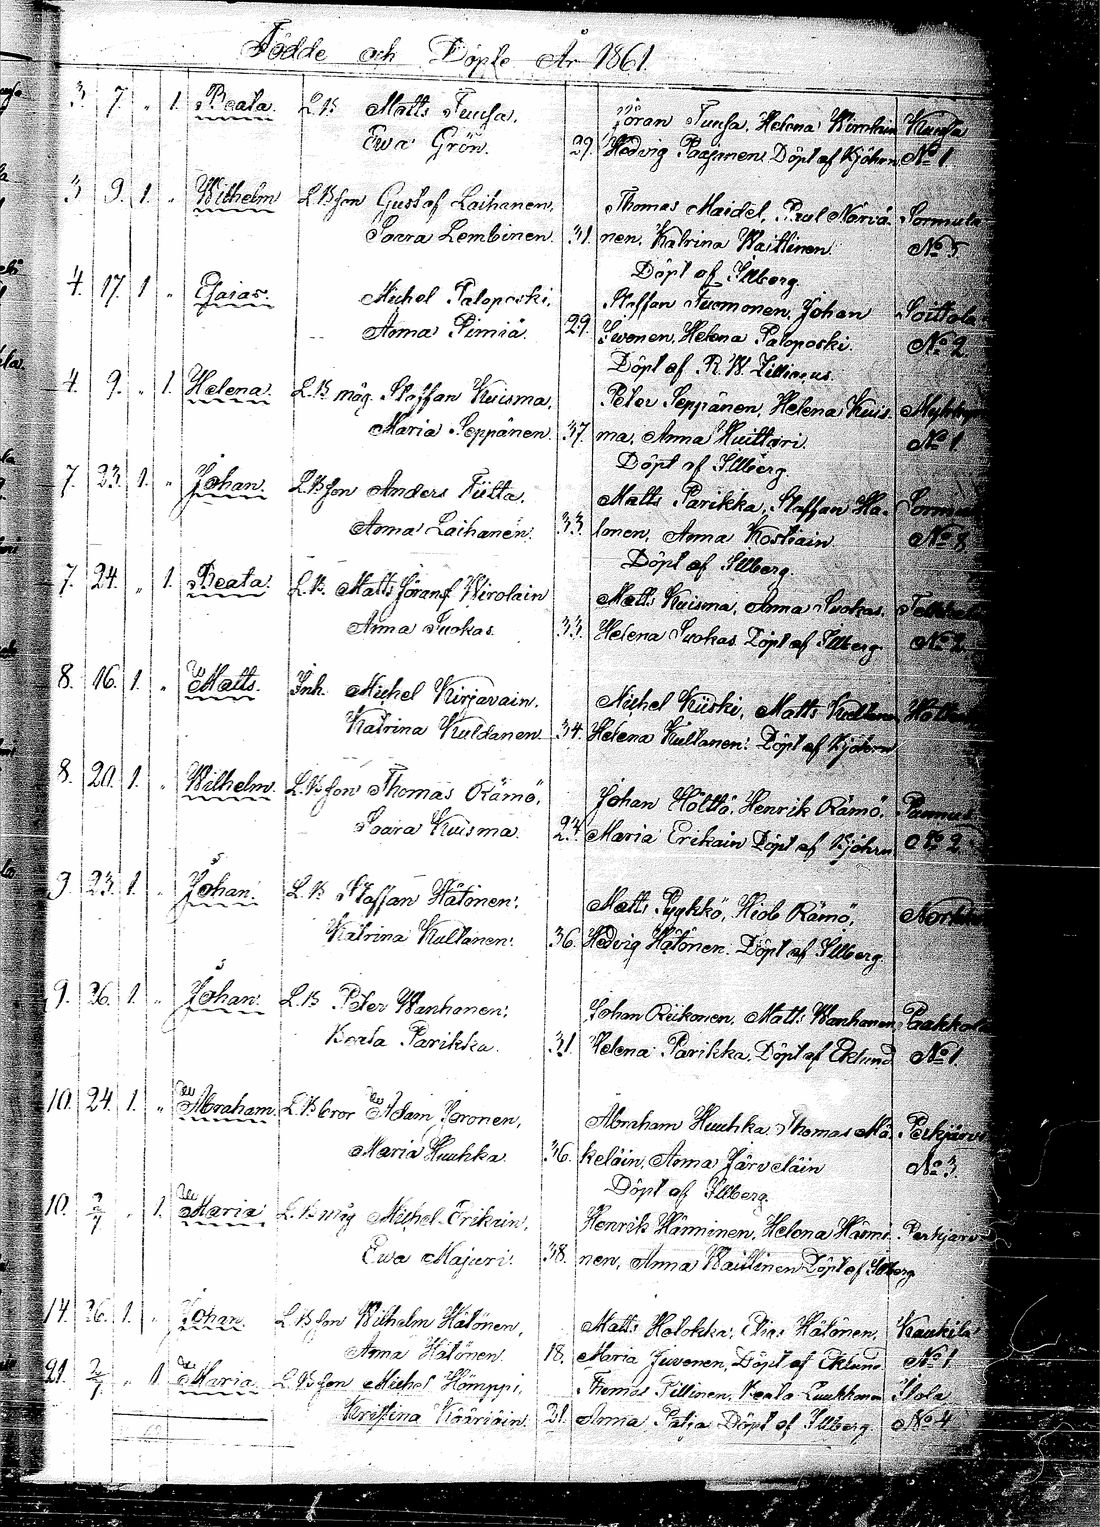 Födde och Döpte År 1861.
3. 7. " 1. Beata. L.B. Matts Tuusa, Jöran Tuusa, Helena Wirolain Kuusa
Ewa Grön. 29. Hedvig Paajanen. Döpt af Kjöhrn No 1
3 9. 1. " Wilhelm L.B.son Gustaf Laihanen, Thomas Maidel, Paul Noriä- Sormula
Saara Lembinen. 31. nen, Katrina Waittinen. No 5.
Döpt af Illberg.
4. 17. 1 " Esaias. Michel Paloposki, Staffan Tuomonen, Johan Soittola
Anna Pimiä. 29. Iivonen, Helena Paloposki. No 2.
Döpt af R. W. Zilliacus.
4. 9. " 1. Helena. L.B. måg. Staffan Kuisma, Peter Seppänen, Helena Kuis-
Maria Seppänen. 37. ma, Anna Huittari. No 1.
Döpt af Illberg.
7. 23. 1. " Johan. L.B.son Anders Tiitta. Matts Parikka, Staffan Ha-
Anna Laihanen. 33. lonen, Anna Kostiain. No 8
Döpt af Illberg.
7. 24. " 1. Beata. L.B. Matts Göransf Wirolain Matts Kuisma, Anna Suokas,
Anna Suokas. 33. Helena Suokas. Döpt af Illberg. No 2.
8. 16. 1. " Matts. Inh. Michel Kirjavain. Michel Kiiski, Matts Kultanen
Katrina Kuldanen. 34. Helena Kultanen. Döpt af Kjöhrn
8. 20. 1. " Wilhelm. L.B.son Thomas Rämö, Johan Hölttö, Henrik Rämö,
Saara Kuisma. 24. Maria Erikain Döpt af Kjöhrn No 2.
9. 23. 1. " Johan. L.B. Staffan Hätönen. Matts Pykkö, Hiob Rämö,
Katrina Kultanen. 36. Hedvig Hätönen. Döpt af Illberg.
9. 26. 1. " Johan. L.B. Peter Wanhanen. Johan Riikonen, Matts Wanhanen Paakkola
Beata Parikka. 31. Helena Parikka. Döpt af Eklund No 1.
10. 24. 1. " Abraham. L.B.bror Adam Joronen, Abraham Huuhka, Thomas Mä- Perkjärvi
Maria Huuhka. 36. keläin, Anna Järveläin No 3.
Döpt af Illberg.
10. 2/7 " 1. Maria L.B.måg Michel Erikain, Henrik Hänninen, Helena Hänni- Perkjärvi
Ewa Majuri. 38. nen, Anna Waittinen Döpt af Illberg
14. 26. 1. " Johan. L.B.son Wilhelm Hätönen, Matts Halokka, Elias Hätönen, Kaukila
Anna Hätönen. 18. Maria Juvonen, Döpt af Eklund No 1
21. 2/7 " 1 Maria L.B.son Michel Hömppi, Thomas Tillinen, Beata Luukkanen Ilola
Kristina Kääriäin. 21. Anna Patja Döpt af Illberg. No 4